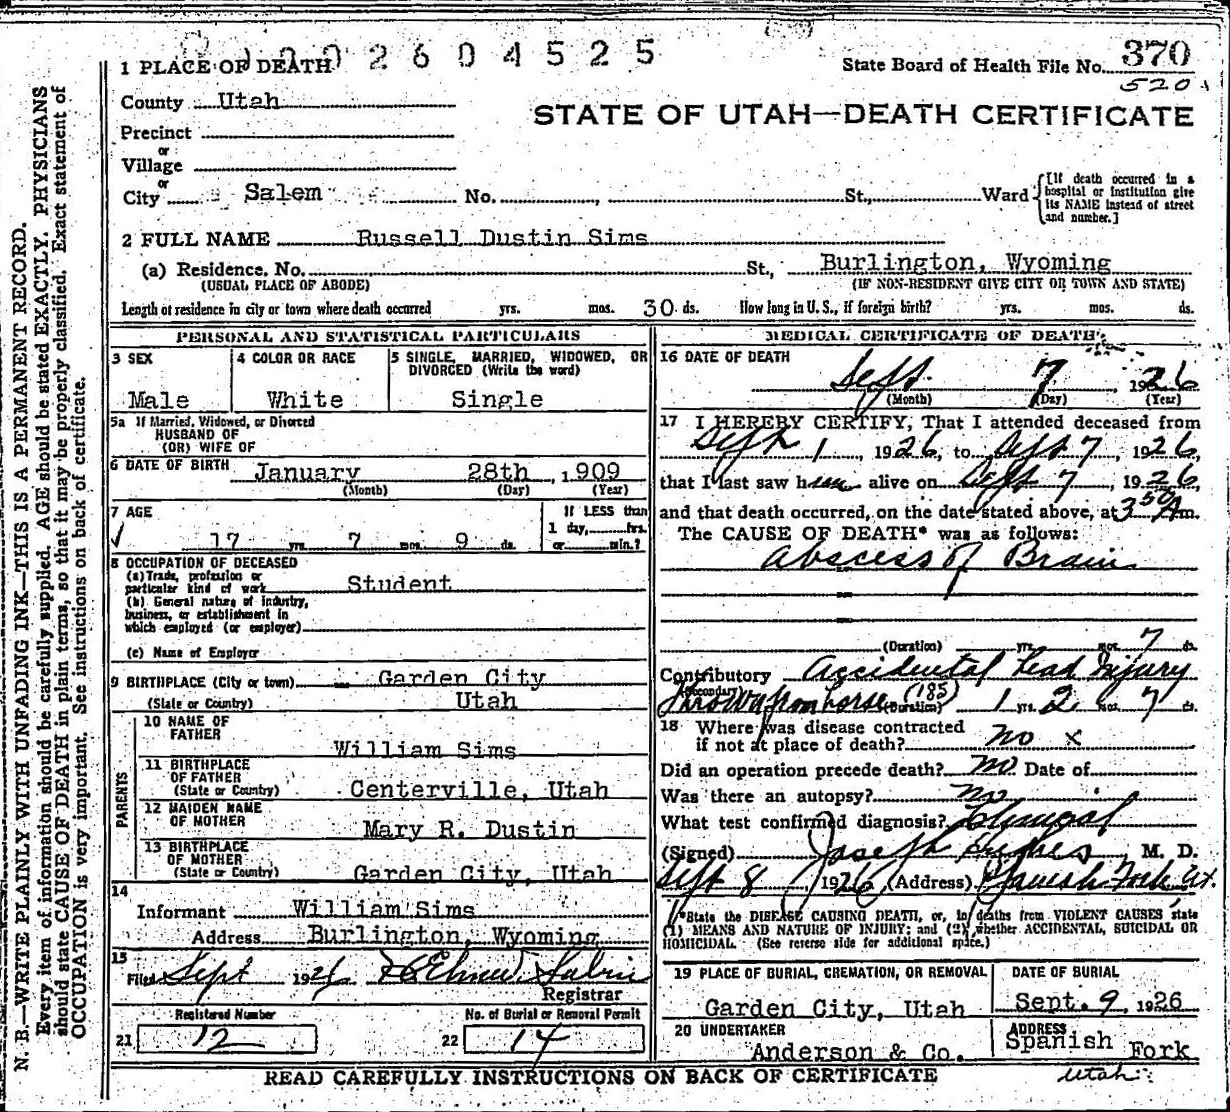 2604525
1 PLACE OF DEATH
State Board of Health File No. 370
520
County Utah
STATE OF UTAH—DEATH CERTIFICATE
Precinct
or
Village
or
City Salem No. St., Ward
[If death occurred in a hospital or institution give its NAME instead of street and number.]
2 FULL NAME Russell Dustin Sims
(a) Residence. No. St., Burlington, Wyoming
(USUAL PLACE OF ABODE) (IF NON-RESIDENT GIVE CITY OR TOWN AND STATE)
Length of residence in city or town where death occurred yrs. mos. 30 ds. How long in U. S., if foreign birth? yrs. mos. ds.
PERSONAL AND STATISTICAL PARTICULARS
3 SEX
Male
4 COLOR OR RACE
White
5 SINGLE, MARRIED, WIDOWED, OR DIVORCED (Write the word)
Single
5a If Married, Widowed, or Divorced
HUSBAND OF
(OR) WIFE OF
6 DATE OF BIRTH January 28th, 1909
(Month) (Day) (Year)
7 AGE
17 yrs. 7 mos. 9 ds.
If LESS than
1 day, hrs.
or min.?
8 OCCUPATION OF DECEASED
(a) Trade, profession or
particular kind of work Student
(b) General nature of industry,
business, or establishment in
which employed (or employer)
(c) Name of Employer
9 BIRTHPLACE (City or town) Garden City
(State or Country) Utah
PARENTS
10 NAME OF
FATHER
William Sims
11 BIRTHPLACE
OF FATHER
(State or Country) Centerville, Utah
12 MAIDEN NAME
OF MOTHER
Mary R. Dustin
13 BIRTHPLACE
OF MOTHER
(State or Country) Garden City, Utah
14
Informant William Sims
Address Burlington, Wyoming
15
Filed Sept 1926
Registrar
Registered Number
21 12
No. of Burial or Removal Permit
22 14
MEDICAL CERTIFICATE OF DEATH
16 DATE OF DEATH
Sept. 7, 1926
(Month) (Day) (Year)
17 I HEREBY CERTIFY, That I attended deceased from
Sept 1, 1926, to Sept 7, 1926,
that I last saw him alive on Sept 7, 1926,
and that death occurred, on the date stated above, at 3 50 A m.
The CAUSE OF DEATH* was as follows:
Abscess of Brain
(Duration) yrs. mos. 7 ds.
Contributory Accidental head Injury
(Secondary) Thrown from horse (185) (Duration) 1 yrs. 2 mos. 7 ds.
18 Where was disease contracted
if not at place of death? no x
Did an operation precede death? no Date of
Was there an autopsy? no
What test confirmed diagnosis?
(Signed) Joseph Hughes M. D.
Sept 8, 1926 (Address) Spanish Fork Ut.
*State the DISEASE CAUSING DEATH, or, in deaths from VIOLENT CAUSES, state
(1) MEANS AND NATURE OF INJURY; and (2) whether ACCIDENTAL, SUICIDAL OR
HOMICIDAL. (See reverse side for additional space.)
19 PLACE OF BURIAL, CREMATION, OR REMOVAL
Garden City, Utah
DATE OF BURIAL
Sept. 9, 1926
20 UNDERTAKER
Anderson & Co.
ADDRESS
Spanish Fork
Utah
READ CAREFULLY INSTRUCTIONS ON BACK OF CERTIFICATE
N. B.—WRITE PLAINLY WITH UNFADING INK—THIS IS A PERMANENT RECORD.
Every item of information should be carefully supplied. AGE should be stated EXACTLY. PHYSICIANS
should state CAUSE OF DEATH in plain terms, so that it may be properly classified. Exact statement of
OCCUPATION is very important. See instructions on back of certificate.